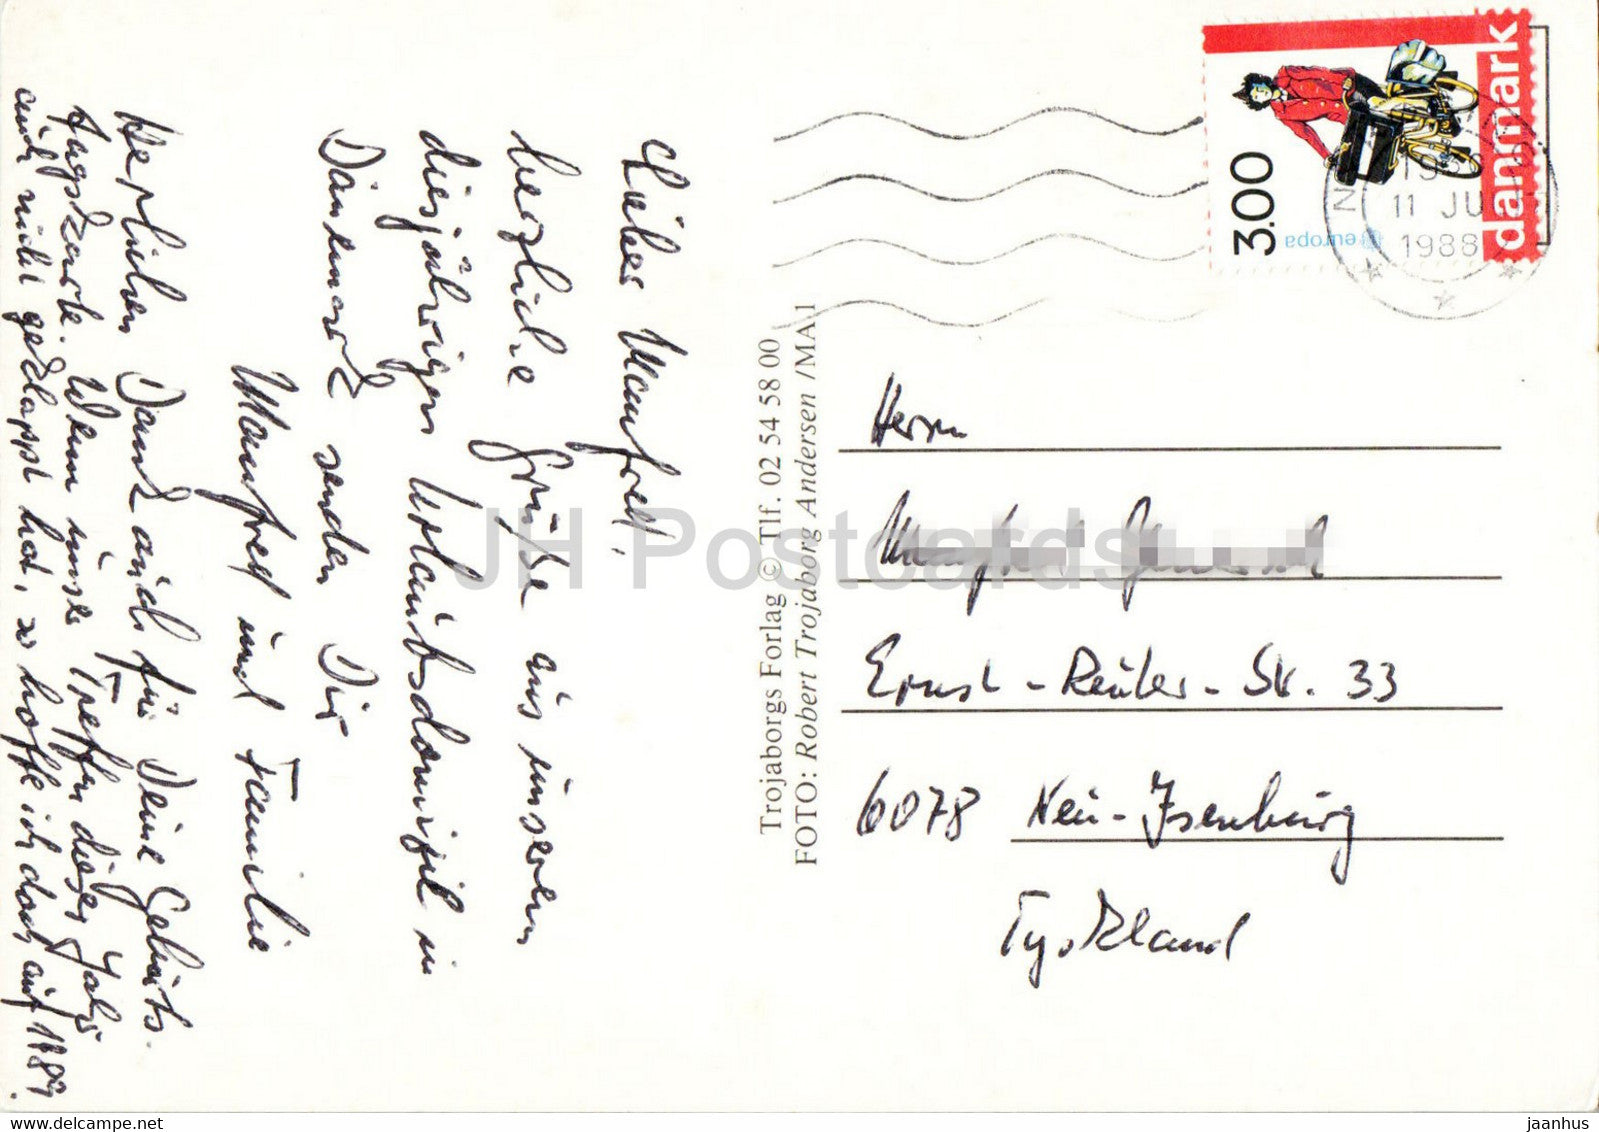 Liebes Manfred,
herzliche Grüße aus unserem
diesjährigen Urlaubsdomizil in
Dänemark senden Dir
Manfred und Familie
Herzlichen Dank auch für Deine Geburts-
tagskarte. Wenn unser Treffen dieses Jahr
auch nicht geklappt hat, so hoffe ich doch auf 1989.
Trojaborgs Forlag © Tlf. 02 54 58 00
FOTO: Robert Trojaborg Andersen /MA 1
danmark
3.00
europa
11 JU
1988
Herrn
Ernst-Reuter-Str. 33
6078 Neu-Isenburg
Tyskland
JH Postcards
HIP POSTCARD
jaanhus